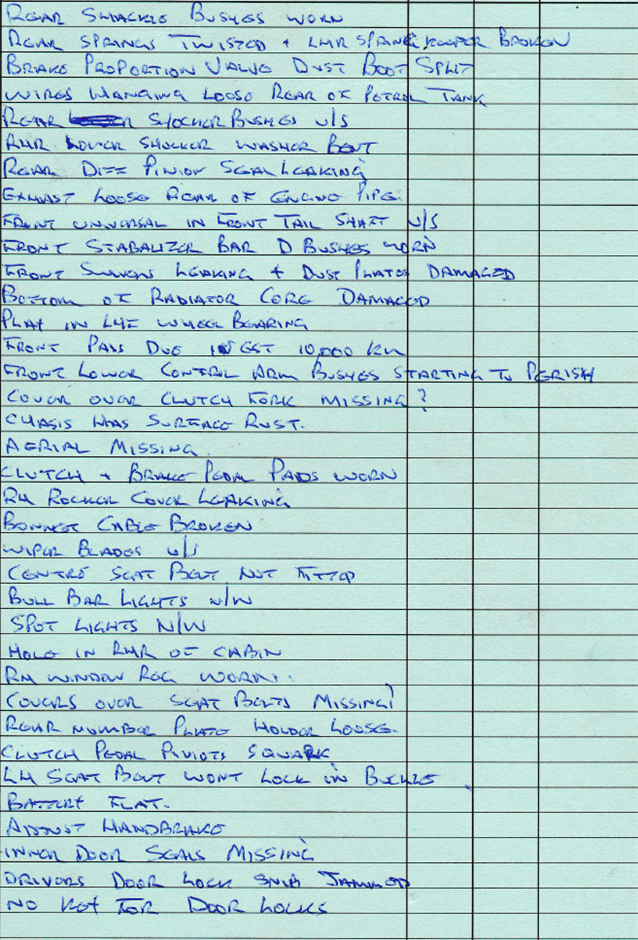 REAR SHACKLE BUSHES WORN
REAR SPRINGS TWISTED + LHR SPRING KEEPER BROKEN
BRAKE PROPORTION VALUE DUST BOOT SPLIT
WIRES HANGING LOOSE REAR OF PETROL TANK
REAR SHOCKER BUSHES U/S
RHR LOWER SHOCKER WASHER BENT
REAR DIFF PINION SEAL LEAKING
EXHAUST LOOSE REAR OF ENGINE PIPE.
FRONT UNIVERSAL IN FRONT TAIL SHAFT U/S
FRONT STABALIZER BAR D BUSHES WORN
FRONT SWIVELS LEAKING + DUST PLATES DAMAGED
BOTTOM OF RADIATOR CORE DAMAGED
PLAY IN LHF WHEEL BEARING
FRONT PADS DUE IN EST 10,000 KM
FRONT LOWER CONTROL ARM BUSHES STARTING TO PERISH
COVER OVER CLUTCH FORK MISSING?
CHASIS HAS SURFACE RUST.
AERIAL MISSING.
CLUTCH + BRAKE PEDAL PADS WORN
RH ROCKER COVER LEAKING
BONNET CABLE BROKEN
WIPER BLADES U/S
CENTRE SEAT BELT NOT FITTED
BULL BAR LIGHTS N/W
SPOT LIGHTS N/W
HOLE IN RHR OF CABIN
RH WINDOW REG WORN.
COVERS OVER SEAT BELTS MISSING!
REAR NUMBER PLATE HOLDER LOOSE.
CLUTCH PEDAL PIVIOTS SQUARK
LH SEAT BELT WONT LOCK IN BUCKLE
BATTERY FLAT.
ADJUST HANDBRAKE
INNER DOOR SEALS MISSING
DRIVERS DOOR LOCK SNIB JAMMED
NO KEY FOR DOOR LOCKS